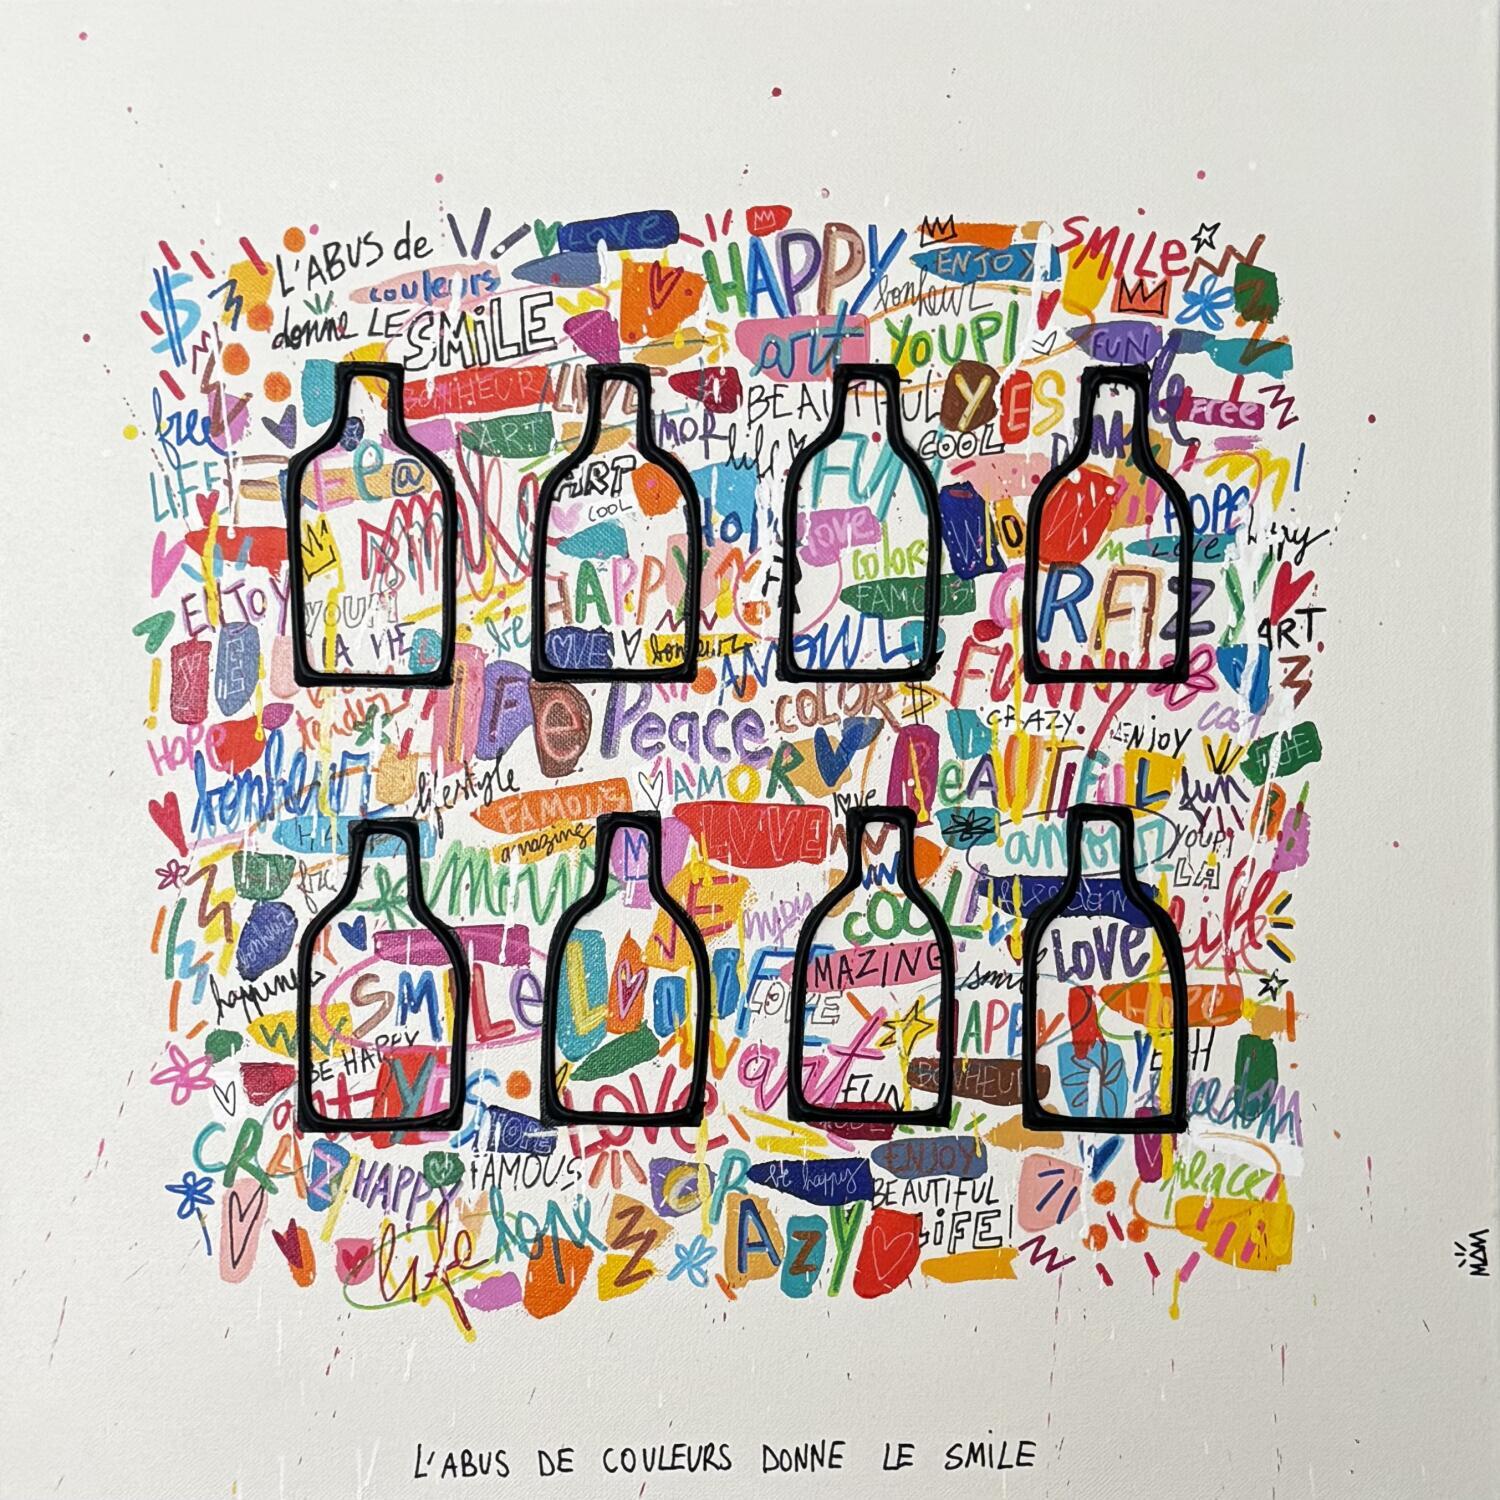 L'ABUS de
couleurs
donne LE SMiLE
Love
HAPPY
ENJOY
SMiLe
bonheur
art
YOUPI
FUN
BONHEUR
LIVE
BEAUTIFUL
YES
FREE
free
ART
AMOR
life
COOL
LIFE
@
smile
ART
COOL
FUN
HOPE
Love
love
COLOR
HAPPY
FAMOUS
CRAZY
ART
ENJOY
YOUPI
LA VIE
be
LOVE
bonheur
AMOUR
FUNNY
LiFe
Peace
COLORS
CRAZY.
ENJOY
COOL
HOPE
tender
bonheur
lifestyle
AMOR
BeAUTiFuL
fun
FAMOUS
amazing
LOVE
love
amour
YOUPi
LA
amour
COOL
LOVE
life
happiness
SMiLe
LIFE
LOVE
AMAZING
smile
HOPE
BE HAPPY
HAPPY
YEAH
art
YES
art
FUN
BONHEUR
freedom
HOPE
LOVE
CRAZY
HAPPY
FAMOUS
be happy
ENJOY
peace
BEAUTIFUL
LiFE!
life
hope
CRAZY
MOM
L'ABUS DE COULEURS DONNE LE SMILE